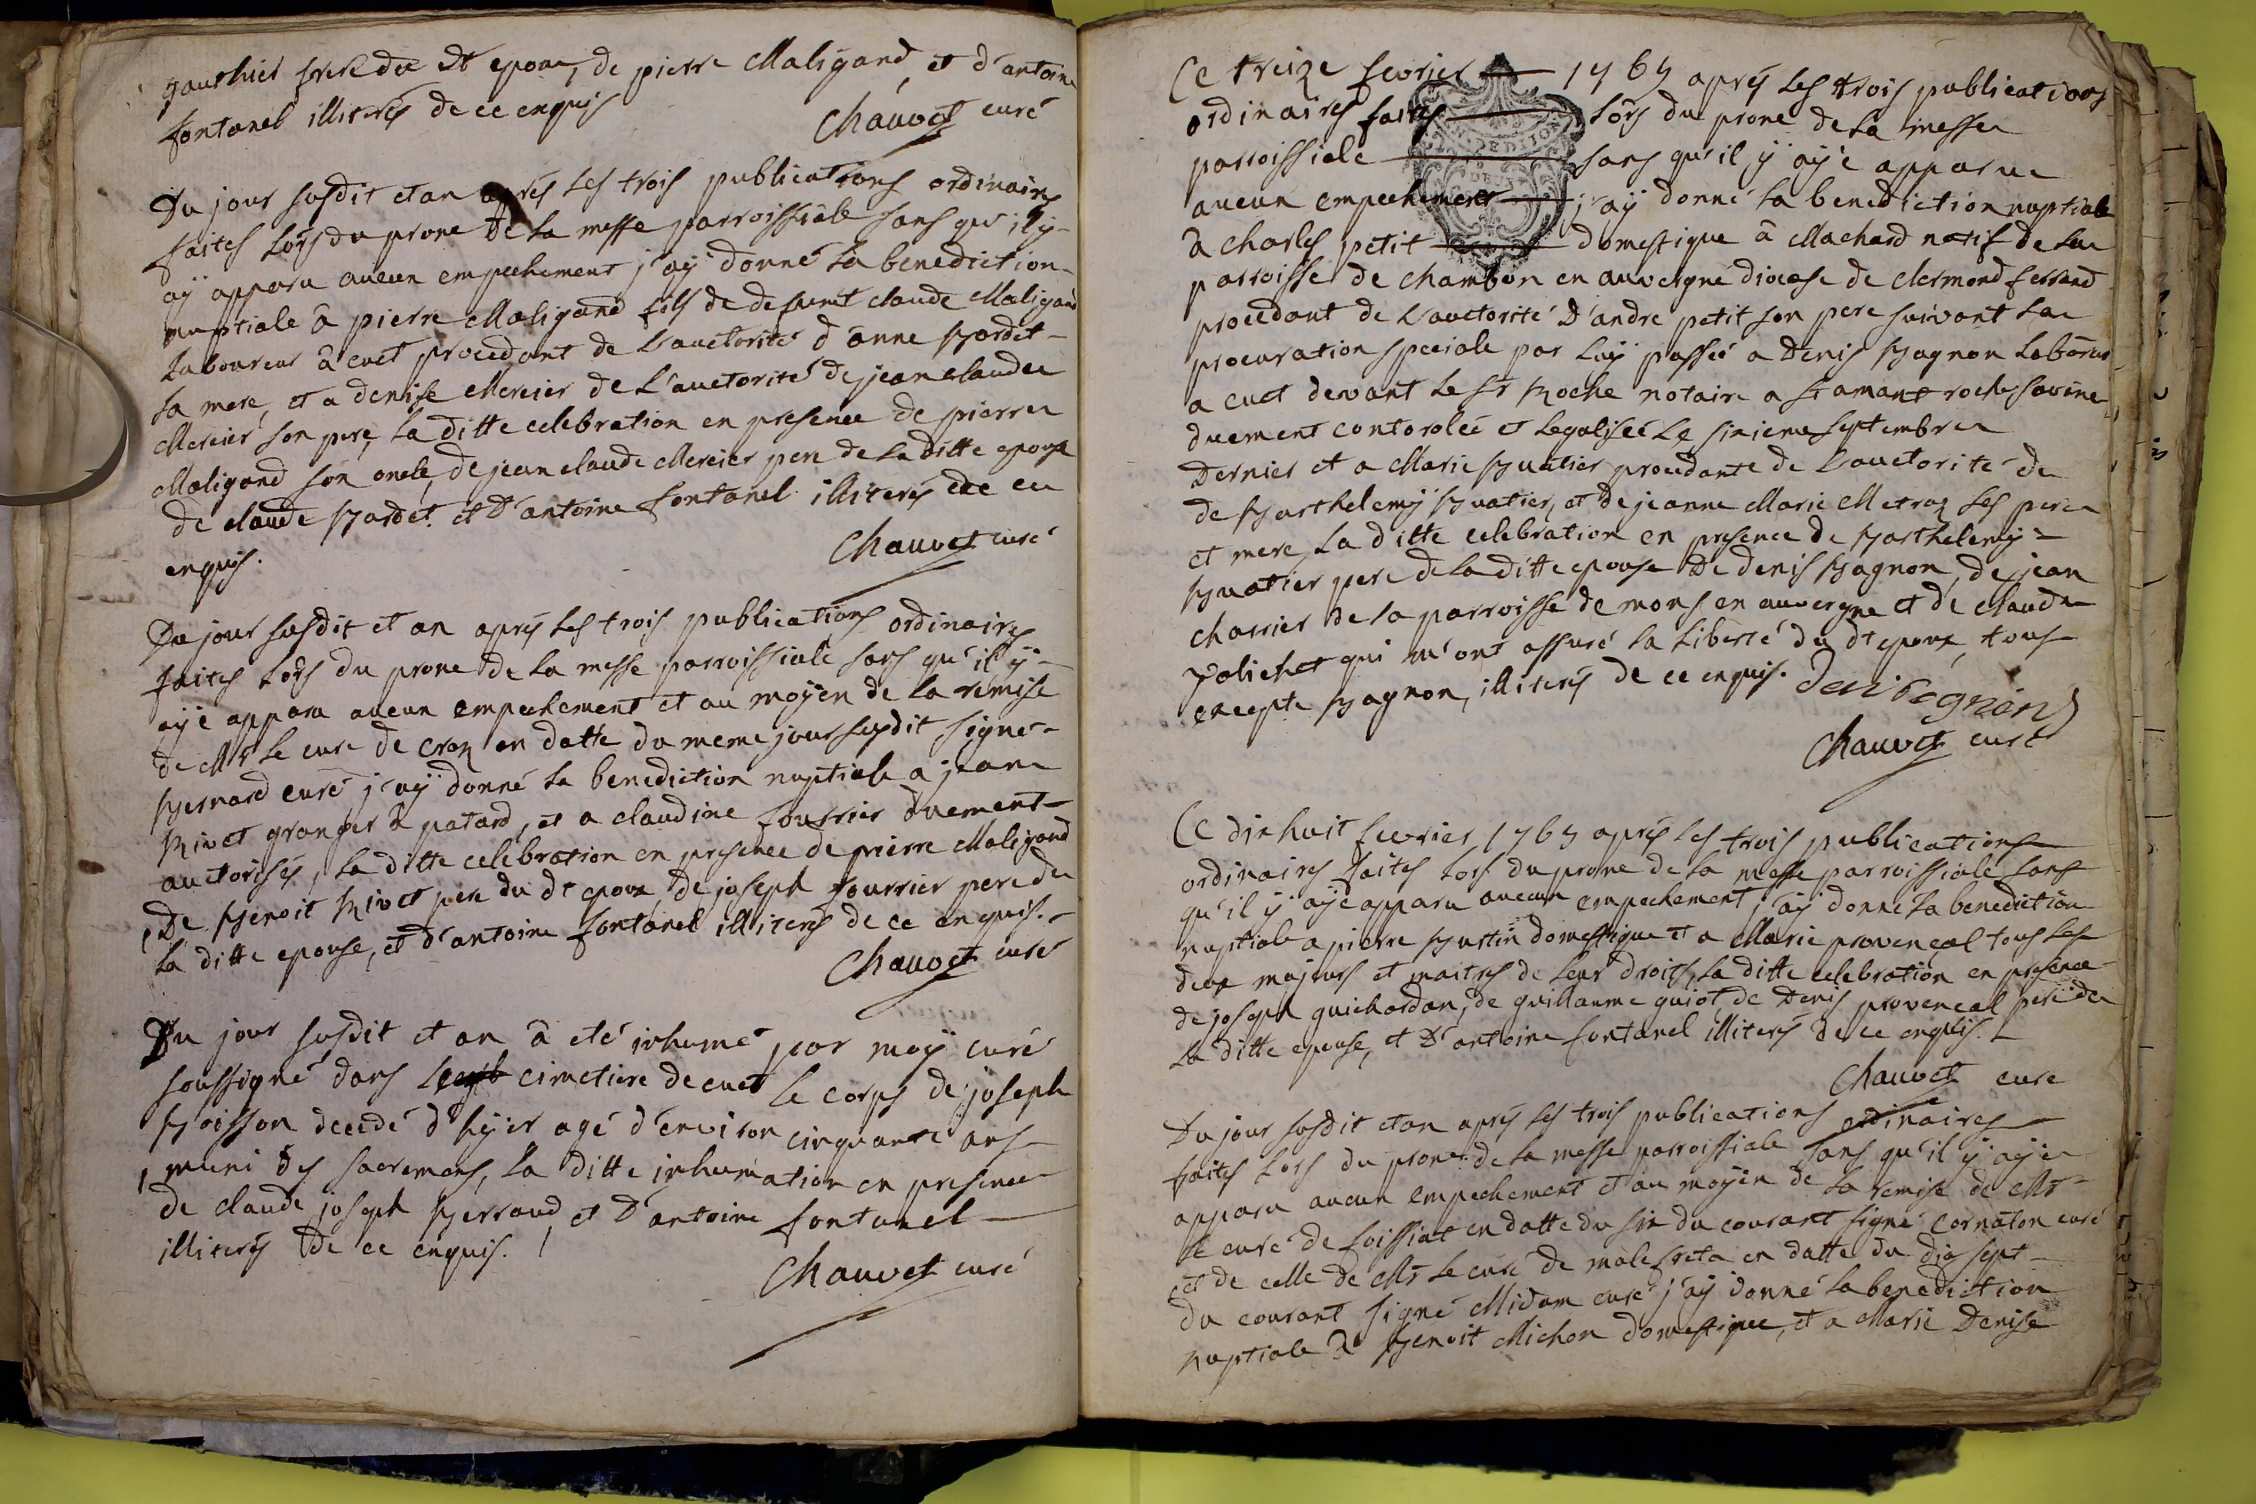 gauthier frere du dt epoux, de pierre Maligand, et d'antoine
fontanel illiterés de ce enquis
Chauvet curé
Du jour susdit et an aprés les trois publications ordinaires
faites lors du prone de la messe parroissiale sans qu'il y
ay apparu aucun empechement j'aÿ donné la benediction
nuptiale à pierre Maligand fils de defunt claude Maligand
laboureur à cuet procedant de l'auctorité d'anne Bardet
sa mere, et a denise Mercier de l'auctorité de jean claude
Mercier son pere, la ditte celebration en presence de pierre
Maligand son oncle, de jean claude Mercier pere de la ditte epouse
de claude Bardet et d'antoine fontanel illiterés de ce
enquis.
Chauvet curé
Du jour susdit et an aprés les trois publications ordinaires
faites lors du prone de la messe parroissiale sans qu'il ÿ
aÿe apparu aucun empechement et au moyen de la remise
de Mr le curé de cras en datte du meme jour susdit signé
Bernard curé j'aÿ donné la benediction nuptiale a jean
Rivet granger à patard, et a claudine fourrier duement
auctorisés, la ditte celebration en presence de pierre Maligand
de Benoit Rivet pere du dt epoux, de joseph fourrier pere de
la ditte epouse, et d'antoine fontanel illiterés de ce enquis.
Chauvet curé
Du jour susdit et an à eté inhumé par moÿ curé
soussigné dans le cimetiere de cuet le corps de joseph
Boisson decedé d'hÿer agé d'environ cinquante ans
muni des sacremens, la ditte inhumation en presence
de claude joseph Berraud, et d'antoine fontanel
illiterés de ce enquis.
Chauvet curé
Ce treize fevrier 1765 aprés les trois publications
ordinaires faites lors du prone de la messe
parroissiale sans qu'il ÿ aÿe apparu
aucun empechement j'aÿ donné la benediction nuptiale
à charles petit domestique à Machard natif de la
parroisse de chambon en auvergne diocese de clermond ferrand
procedant de l'auctorité d'andre petit son pere suivant la
procuration speciale par luÿ passée a Denis Bagnon laboureur
a cuet devant le Sr Roche notaire a St amant roche savine
duement contorolée et legalisée le sixieme septembre
Dernier et a Marie Buatier procedante de l'auctorité de
de Barthelemÿ Buatier, et de jeanne Marie Metraz ses pere
et mere, la ditte celebration en presence de Barthelemÿ
Buatier pere de la ditte epouse de denis Bagnon, de jean
charrier de la parroisse de mons en auvergne et de claude
Volichet qui m'ont assuré la liberté du dt epoux, tous
excepte Bagnon, illiterés de ce enquis.
Chauvet curé
Ce dix huit fevrier 1765 aprés les trois publications
ordinaires faites lors du prone de la messe parroissiale sans
qu'il ÿ aÿe apparu aucun empechement j'aÿ donné la benediction
nuptiale a pierre Burtin domestique et a Marie provencal tous les
deux majeurs et maitres de leur droits, la ditte celebration en presence
de joseph guichardan, de guillaume guiot de Denis provencal pere de
la ditte epouse, et d'antoine fontanel illiterés de ce enquis.
Chauvet curé
Du jour susdit et an aprés les trois publications ordinaires
faites lors du prone de la messe parroissiale sans qu'il ÿ aÿe
apparu aucun empechement et au moÿen de la remise de Mr
le curé de foissiat en datte du six du courant signé cornaton curé
et de celle de Mr le curé de malefreta en datte du dix sept
du courant signé Midan curé j'aÿ donné la benediction
nuptiale à Benoit Michon domestique, et a Marie Denise